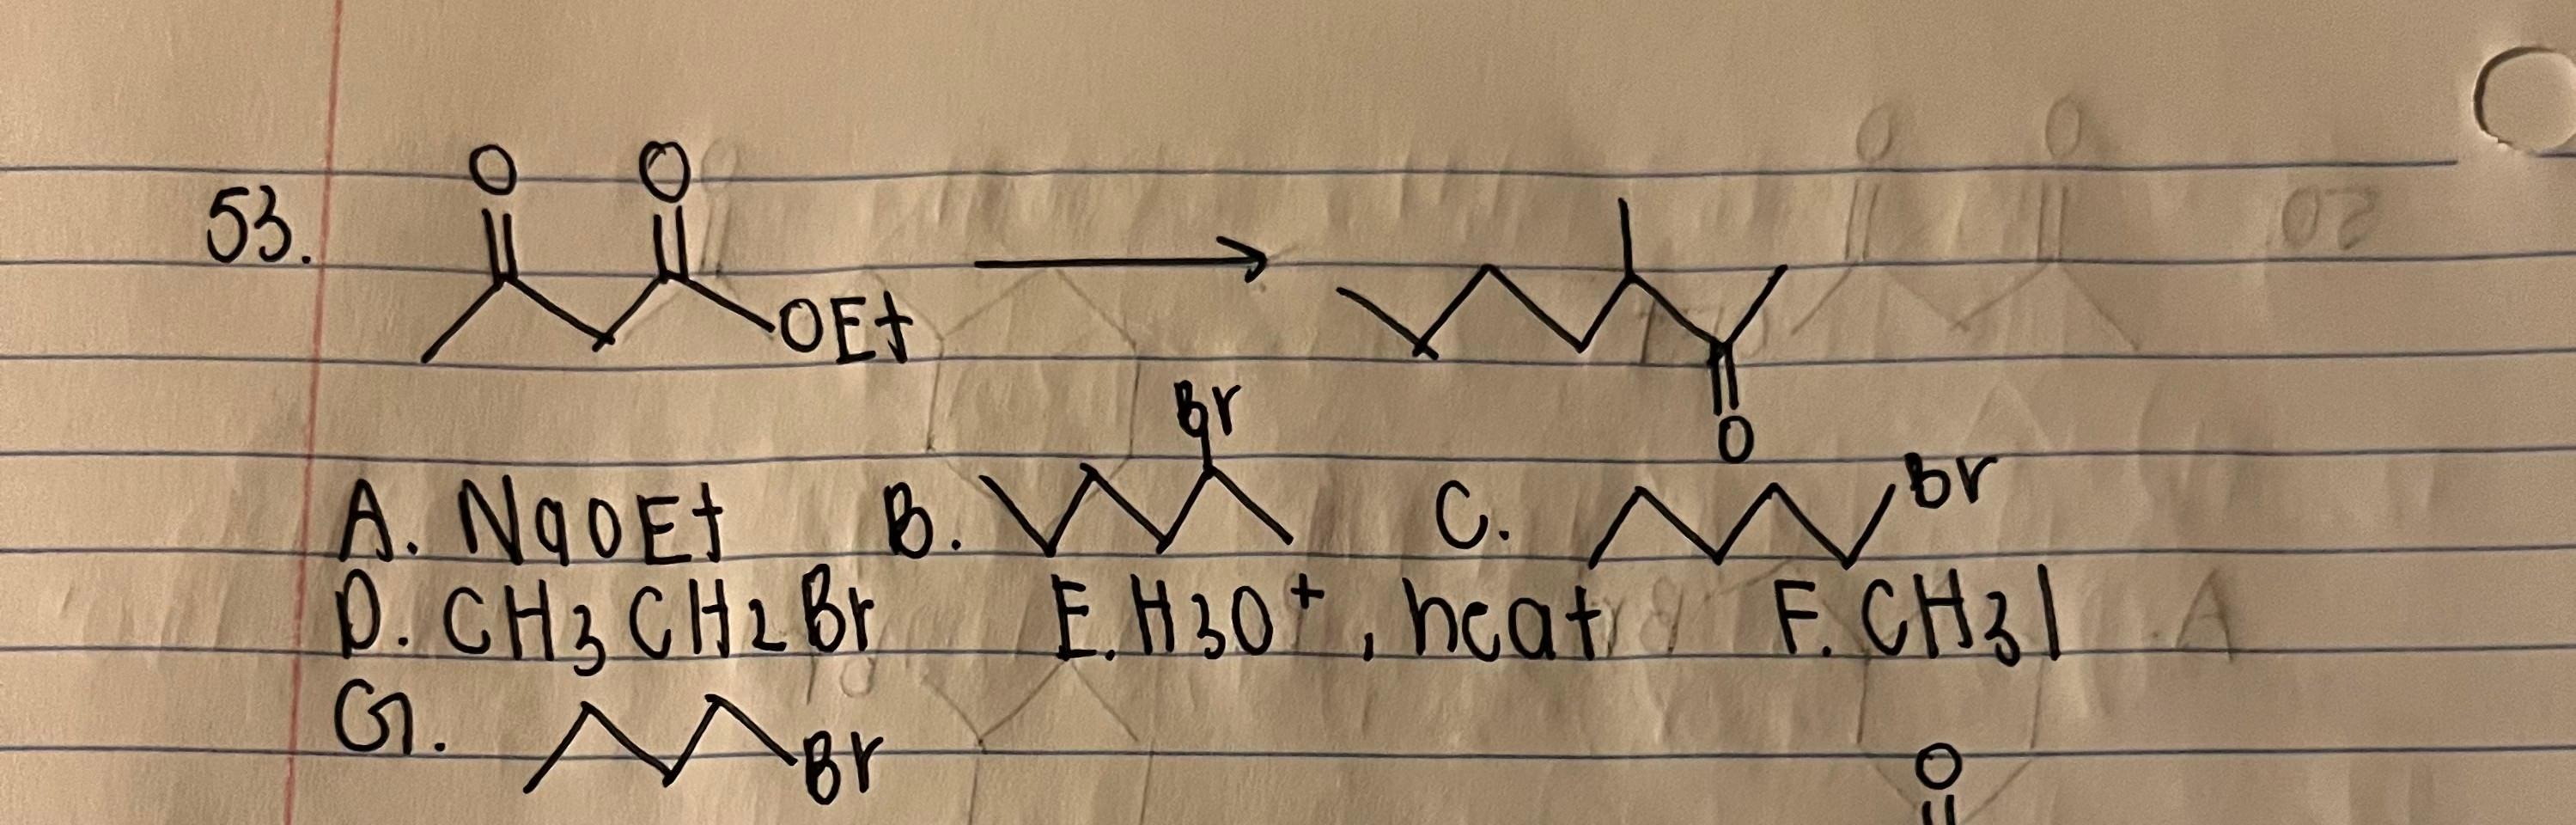 O O
53. OEt
O
Br
A. NaOEt B. C. Br
D. CH3CH2Br E. H3O+, heat F. CH3I
G. Br
O